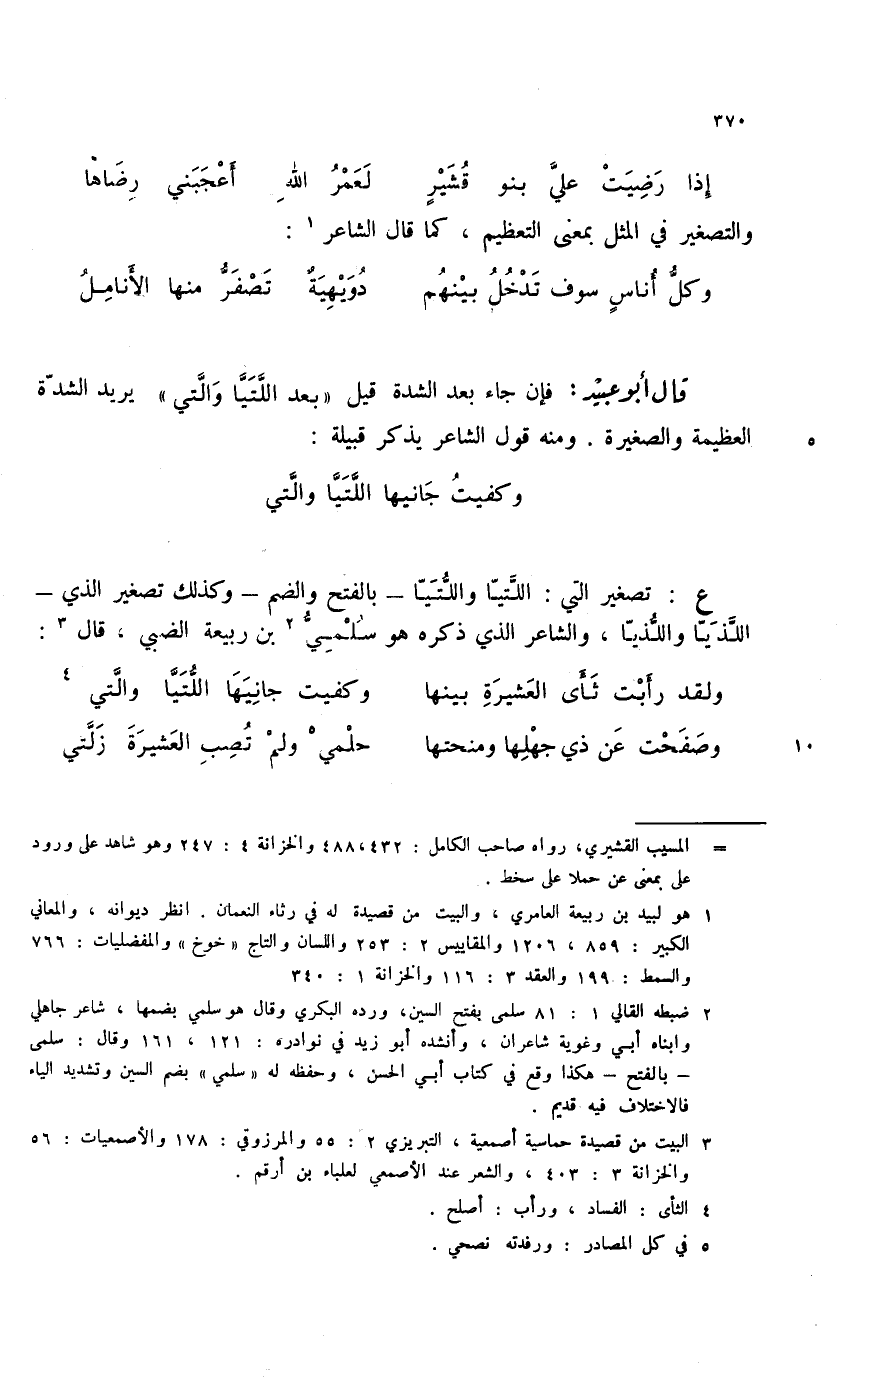 ٣٧٠
إذا رَضِيَتْ عليَّ بنو قُشَيْرٍ لَعَمْرُ اللهِ أَعْجَبَني رِضَاها
والتصغير في المثل بمعنى التعظيم ، كما قال الشاعر ١ :
وكلُّ أُناسٍ سوف تَدْخُلُ بيْنهُم دُوَيْهِيَةٌ تَصْفَرُّ منها الأَنامِلُ
قال أبو عبيد : فإن جاء بعد الشدة قيل «بعد اللَّتَيَّا وَالَّتي» يريد الشدّة
العظيمة والصغيرة . ومنه قول الشاعر يذكر قبيلة :
٥
وكفيتُ جَانيها اللَّتَيَّا والَّتي
ع : تصغير التي : اللَّتيّا واللُّتَيّا – بالفتح والضم – وكذلك تصغير الذي –
اللَّذَيّا واللُّذيّا ، والشاعر الذي ذكره هو سُلْمِيُّ ٢ بن ربيعة الضبي ، قال ٣ :
ولقد رأَبْت ثَأَى العَشيرَةِ بينها وكفيت جانِيَهَا اللُّتَيَّا والَّتي ٤
وصَفَحْت عَن ذي جهْلِها ومنحتها حلْمي ٥ ولمْ تُصِبِ العَشيرَةَ زَلَّتي
١٠
= المسيب القشيري، رواه صاحب الكامل : ٤٣٢،٤٨٨ والخزانة ٤ : ٢٤٧ وهو شاهد على ورود
على بمعنى عن حملا على سخط .
١ هو لبيد بن ربيعة العامري ، والبيت من قصيدة له في رثاء النعمان . انظر ديوانه ، والمعاني
الكبير : ٨٥٩ ، ١٢٠٦ والمقاييس ٢ : ٢٥٣ واللسان والتاج «خوخ» والمفضليات : ٧٦٦
والسمط : ١٩٩ والعقد ٣ : ١١٦ والخزانة ١ : ٣٤٠
٢ ضبطه القالي ١ : ٨١ سلمى بفتح السين، ورده البكري وقال هو سلمي بضمها ، شاعر جاهلي
وابناه أبي وغوية شاعران ، وأنشده أبو زيد في نوادره : ١٢١ ، ١٦١ وقال : سلمى
– بالفتح – هكذا وقع في كتاب أبي الحسن ، وحفظه له «سلمي» بضم السين وتشديد الياء
فالاختلاف فيه قديم .
٣ البيت من قصيدة حماسية أصمعية ، التبريزي ٢ : ٥٥ والمرزوقي : ١٧٨ والأصمعيات : ٥٦
والخزانة ٣ : ٤٠٣ ، والشعر عند الأصمعي لعلباء بن أرقم .
٤ الثأى : الفساد ، ورأب : أصلح .
٥ في كل المصادر : ورفدته نصحي .